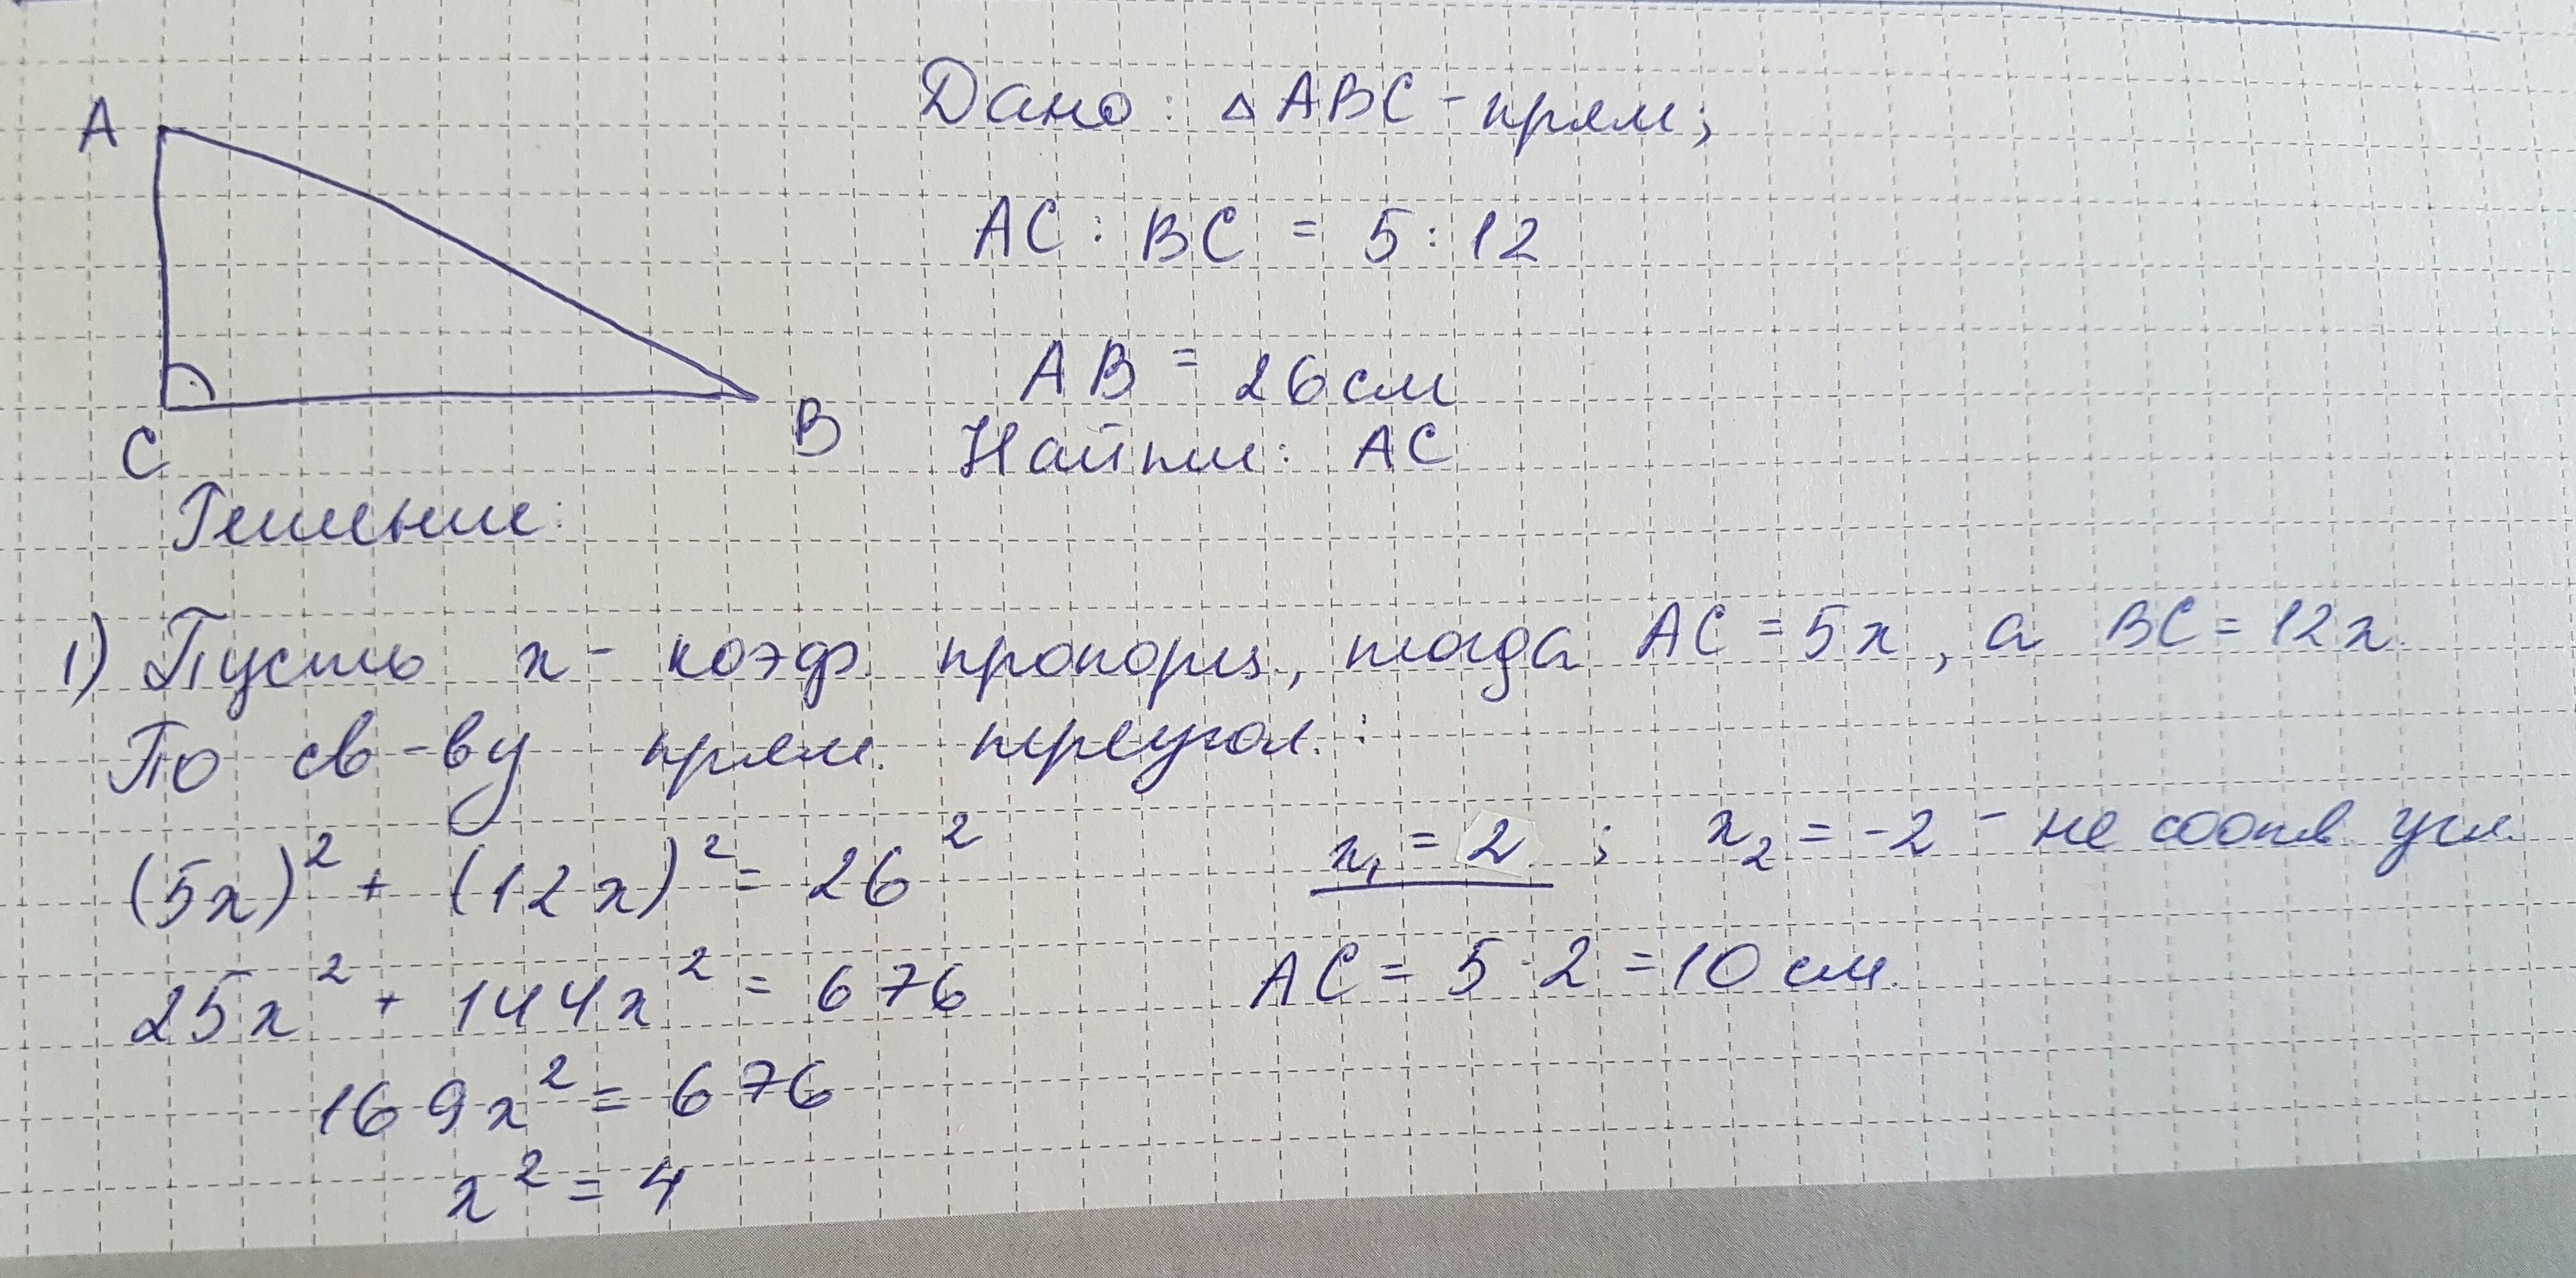 A
C
B
Дано: △ABC - прям;
AC : BC = 5 : 12
AB = 26 см
Найти: AC
Решение:
1) Пусть x - коэф. пропорц., тогда AC = 5x, а BC = 12x.
По св-ву прям. треугол.:
(5x)² + (12x)² = 26²
25x² + 144x² = 676
169x² = 676
x² = 4
x₁ = 2 ; x₂ = -2 - не соотв. усл.
AC = 5 · 2 = 10 см.